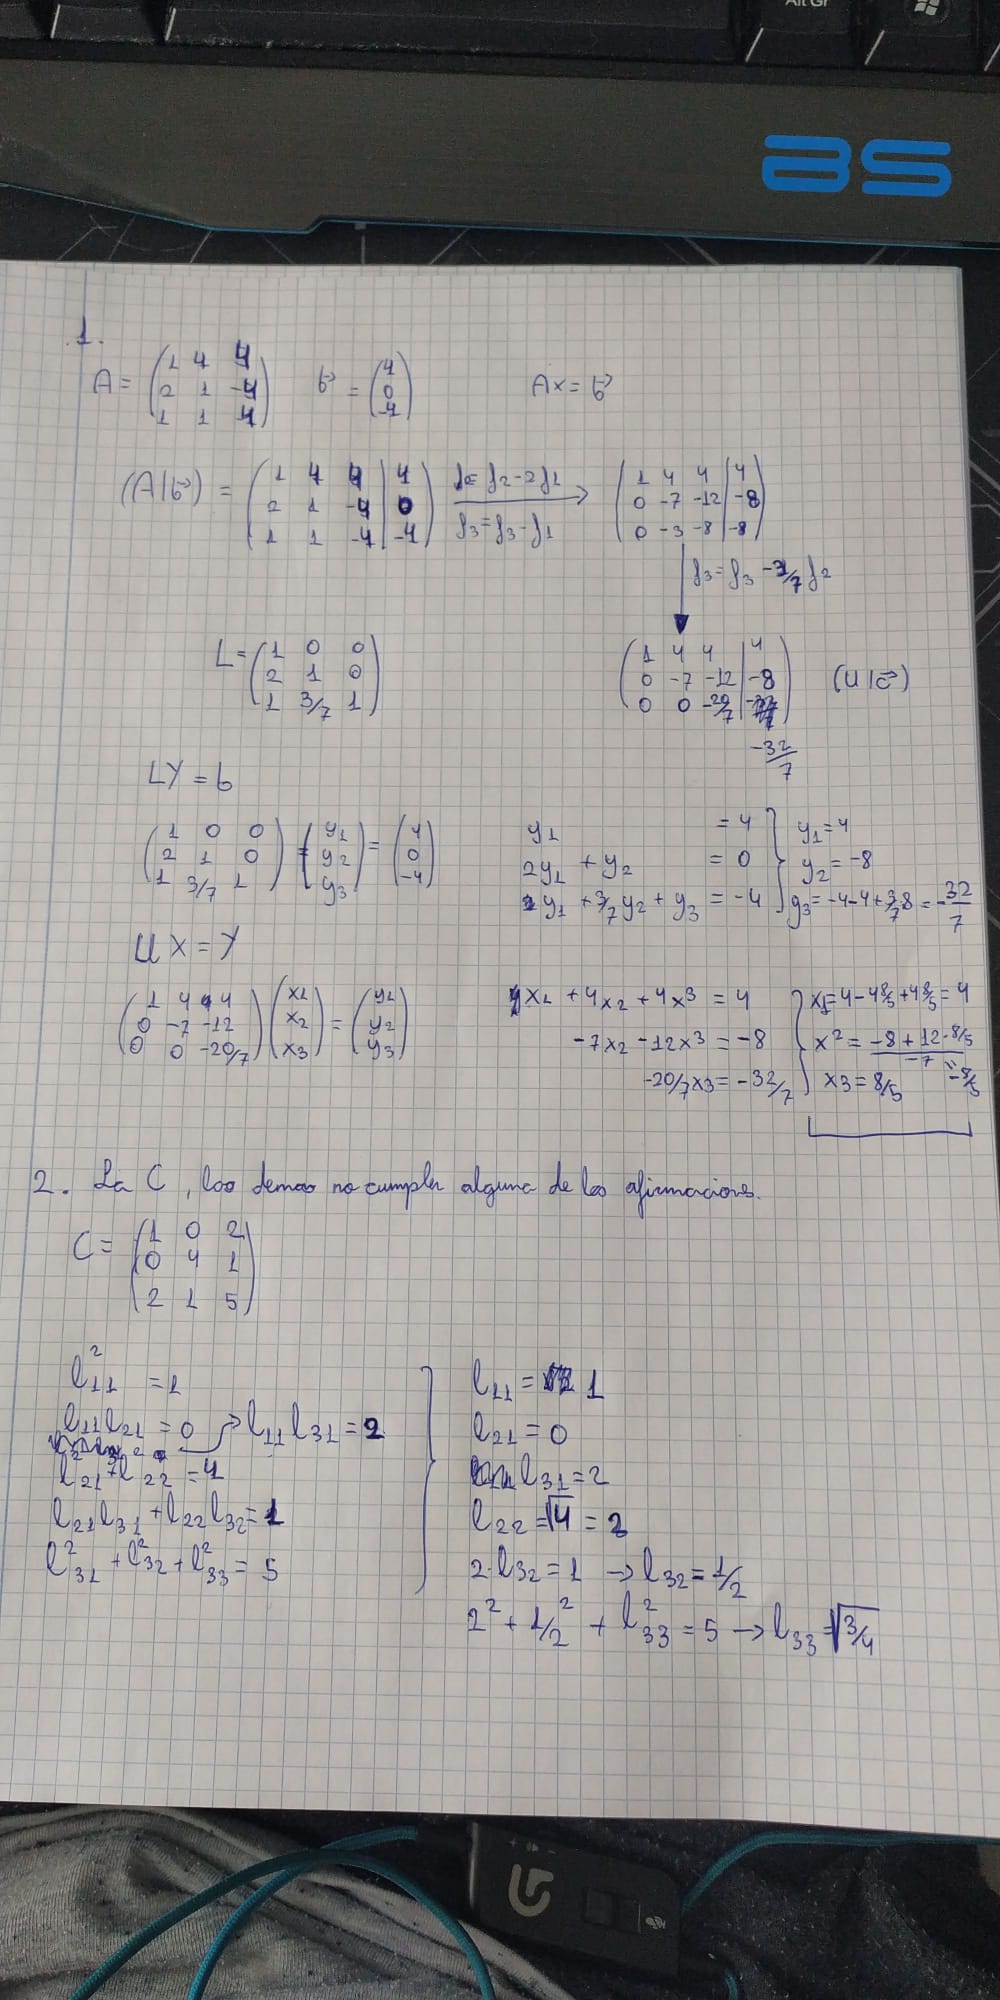 Alt Gr
as
1.
A = (1 4 4; 2 1 -4; 1 1 -4) b⃗ = (4; 0; -4) Ax = b⃗
(A|b⃗) = (1 4 4 | 4; 2 1 -4 | 0; 1 1 -4 | -4) f2=f2-2f1 f3=f3-f1 → (1 4 4 | 4; 0 -7 -12 | -8; 0 -3 -8 | -8)
f3=f3-3/7f2
L = (1 0 0; 2 1 0; 1 3/7 1) (1 4 4 | 4; 0 -7 -12 | -8; 0 0 -20/7 | -32/7) (U|c⃗)
LY = b
(1 0 0; 2 1 0; 1 3/7 1) (y1; y2; y3) = (4; 0; -4)
y1 = 4
2y1 + y2 = 0
y1 + 3/7y2 + y3 = -4
y1=4
y2=-8
y3=-4-4+3/7 8=-32/7
UX = Y
(1 4 4; 0 -7 -12; 0 0 -20/7) (x1; x2; x3) = (y1; y2; y3)
x1 + 4x2 + 4x3 = 4
-7x2 -12x3 = -8
-20/7x3 = -32/7
x1=4-4 8/5+4 8/5=4
x2 = (-8+12·8/5)/-7 = -8/5
x3=8/5
2. La C, los demas no cumplen alguna de las afirmaciones.
C = (1 0 2; 0 4 1; 2 1 5)
l²11 = 1
l11l21 = 0 → l11l31 = 2
l²21+l²22 = 4
l21l31+l22l32=1
l²31+l²32+l²33=5
l11= 1
l21=0
l31=2
l22=√4=2
2·l32=1 → l32=1/2
2²+1/2²+l²33=5 → l33=√3/4
G